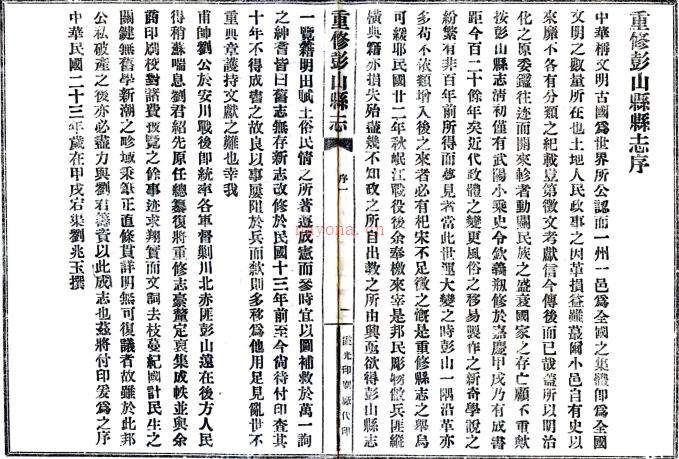 重修彭山縣縣志序
中華稱文明古國爲世界所公認而一州一邑爲全國之集體卽爲全國
文明之數量所在也土地人民政事之因革損益雖蕞爾小邑自有史以
來靡不各有分類之紀載豈第徵文考獻信今傳後而已哉蓋所以明治
化之原委鑑往迹而開來軫者動關民族之盛衰國家之存亡顧不重歟
按彭山縣志清初僅有武陽小乘史令欽義剏修於嘉慶甲戌乃有成書
距今百二十餘年矣近代政體之變更風俗之移易製作之新奇學說之
紛繁有非百年前所得而夢見者當此世運大變之時彭山一隅沿革亦
多苟不依類增入後之來者必有杞宋不足徵之慨是重修縣志之舉烏
可緩耶民國廿二年秋岷江戰役後余奉檄來宰是邦民彫物敝兵匪縱
橫典籍亦損失殆盡幾不知政之所自出敎之所由興亟欲得彭山縣志
重修彭山縣志
序一
一
光印刷廠代印
一覽籍明田賦土俗民情之所著遵成憲而參時宜以圖補救於萬一詢
之紳耆皆曰舊志無存新志改修於民國十三年前至今尚待付印查其
十年不得成書之故良以事屢阻於兵而欵則多移爲他用足見亂世不
重典章護持文獻之難也幸我
甫帥劉公於安川戰後卽統率各軍督剿川北赤匪彭山遠在後方人民
得稍蘇喘息劉君紹先原任總纂復將重修志稾釐定裒集成帙並與余
商印刷校對諸費披覽之餘事迹求翔實而文詞去枝蔓紀國計民生之
關鍵無舊學新潮之畛域秉筆正直條貫詳明無可復議者故雖於此邦
公私破產之後亦必盡力與劉君籌資以此成志也茲將付印爰爲之序
中華民國二十三年歲在甲戌宕渠劉兆玉撰
rayona.in